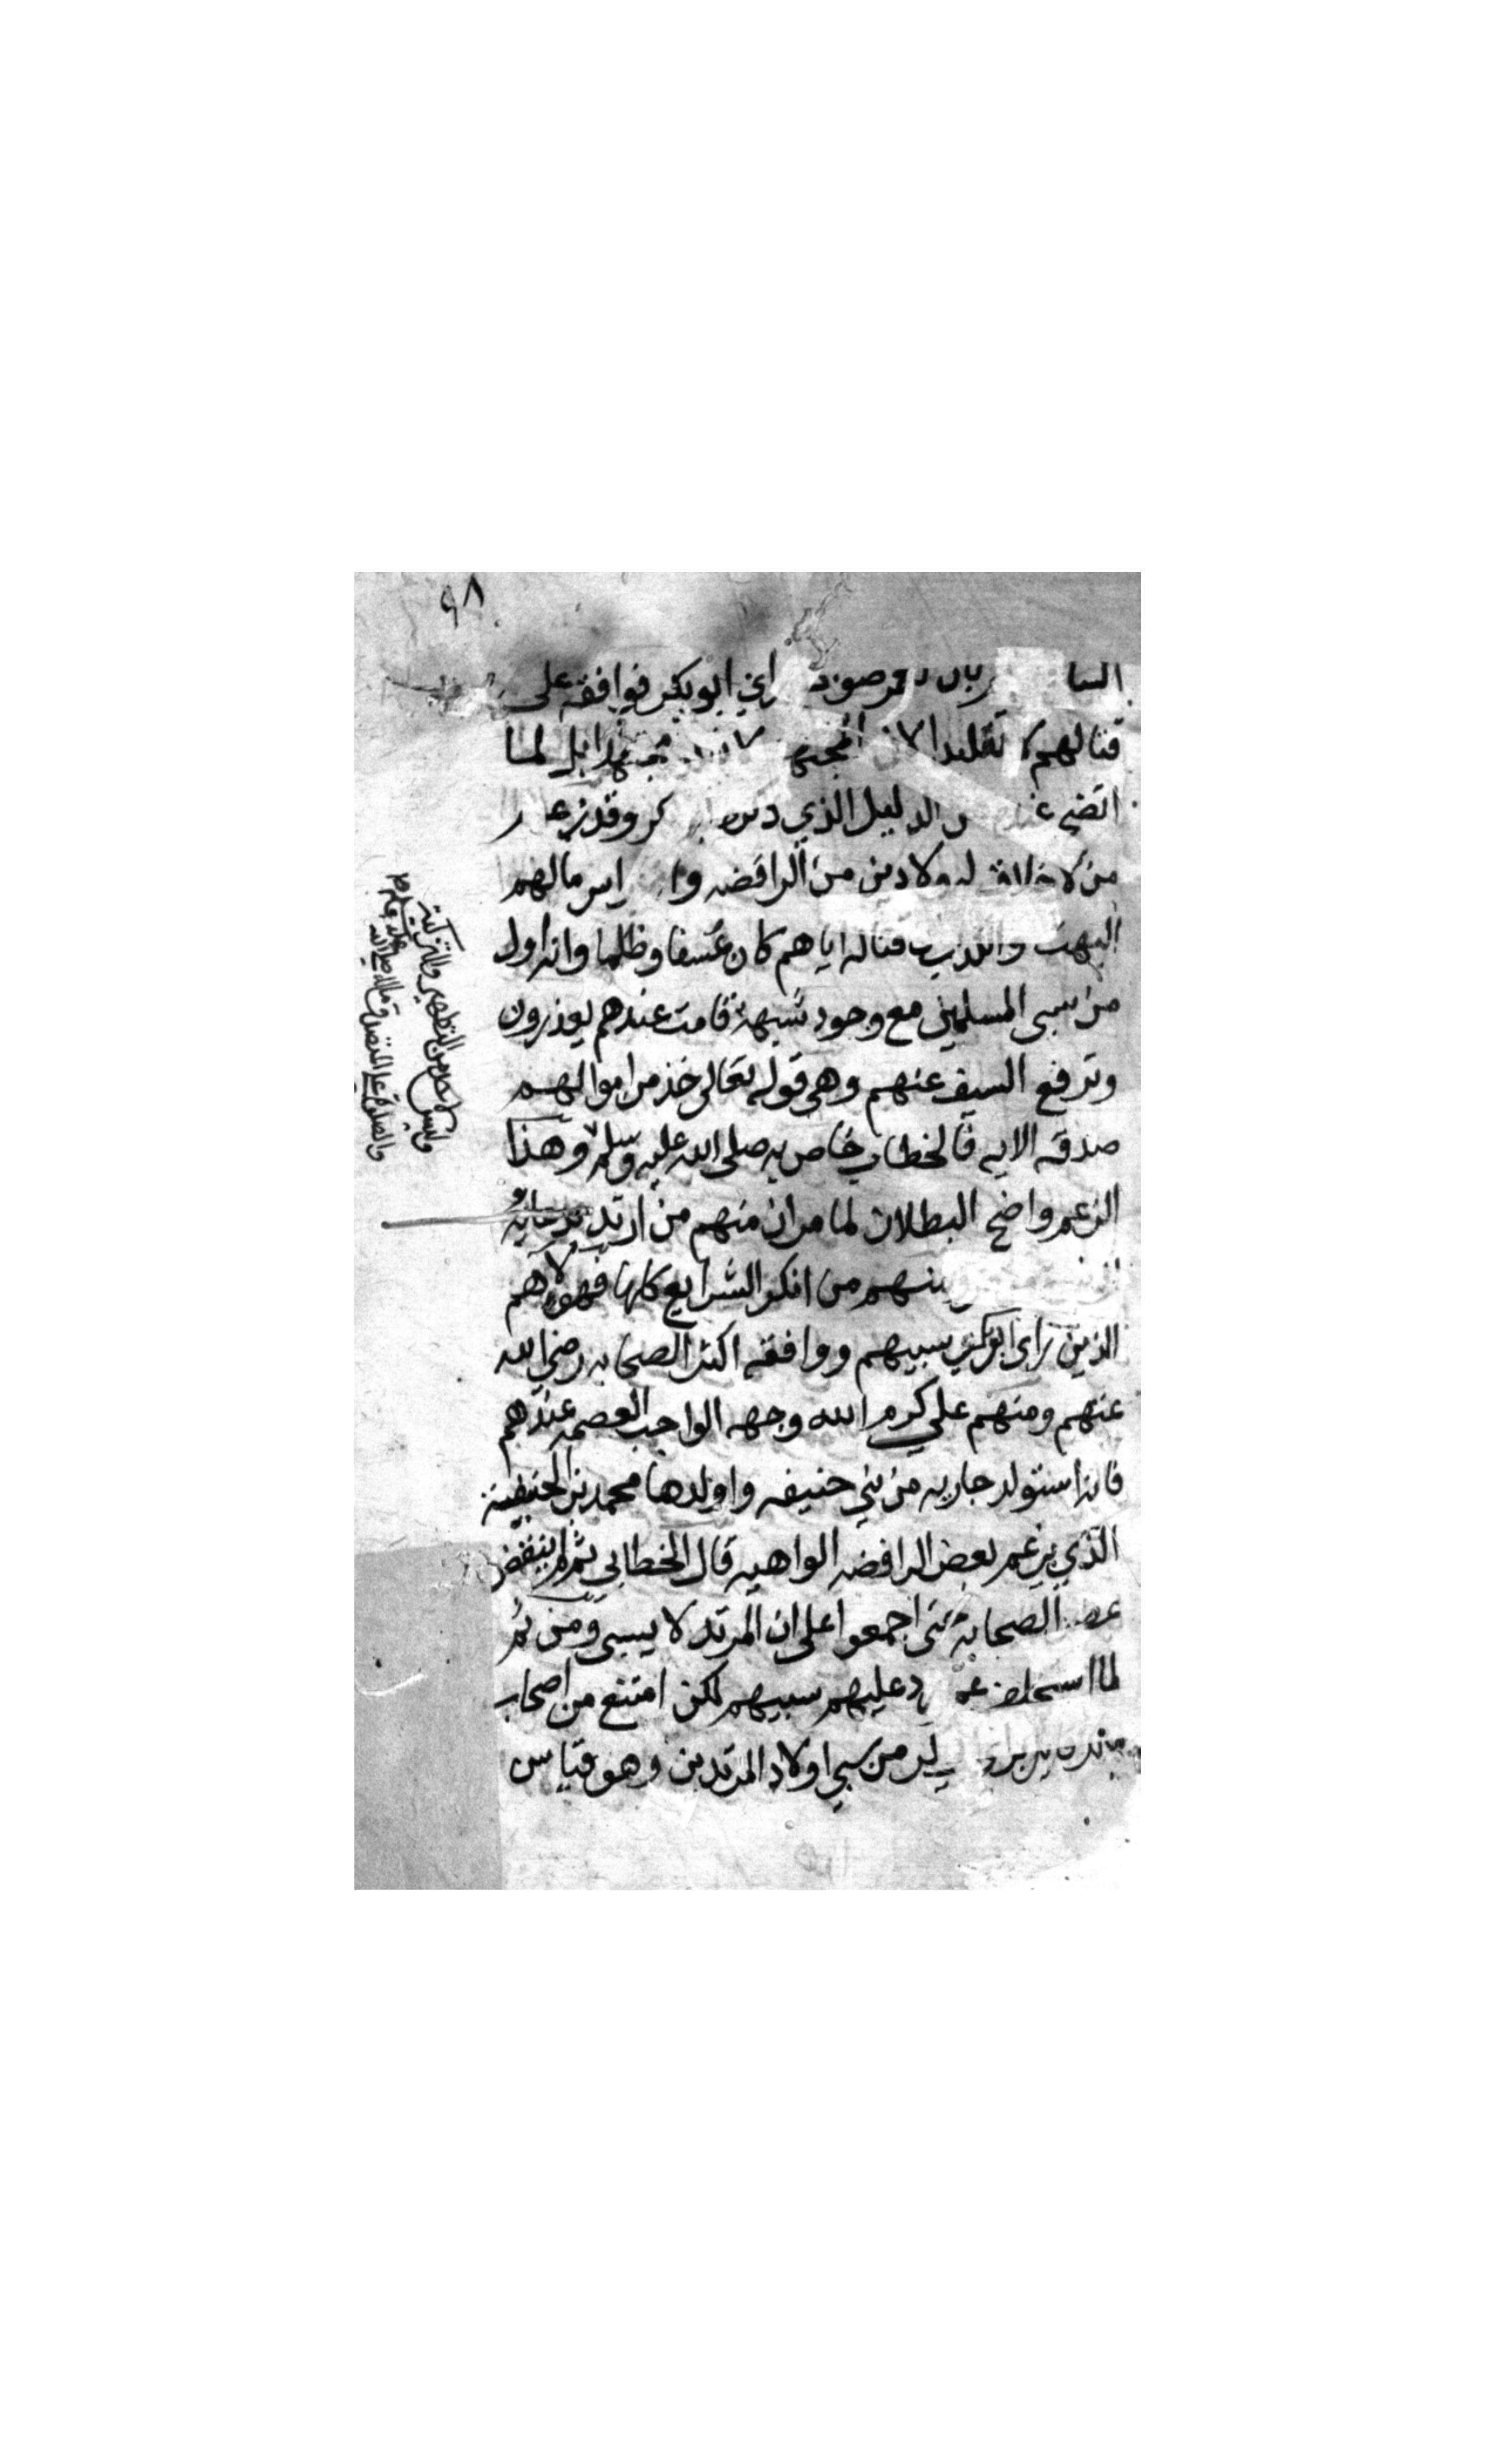 ٩٨
راي ابو بكر فوافقه على
قتالهم لا تقليدا لان المجتهد لا مجتهدا بل لما
اتضح الدليل الذي وقد زعم
من لا خلاق له ولا دين من الرافضه راس مالهم
البهت والكذب قتاله اياهم كان عسفا وظلما وانه اول
من سبى المسلمين مع وجود شبهة قامت عندهم يعذرون
وترفع السيف عنهم وهي قوله تعالى خذ من اموالهم
صدقه الايه فالخطاب خاص به صلى الله عليه وسلم وهذا
الزعم واضح البطلان لما مر ان منهم من ارتد
ومنهم من انكر الشرايع كلها فهولاء هم
الذين راى ابو بكر سبيهم ووافقه اكثر الصحابه رضي الله
عنهم ومنهم علي كرم الله وجهه الواجب العصمه عندهم
فانه استولد جاريه من بني حنيفه واولدها محمد بن الحنفية
الذي يزعم بعض الرافضه الواهيه قال الخطابي ثم لم ينقض
عصر الصحابة حتى اجمعوا على ان المرتد لا يسبى ومن ثم
لما استخلف عمر رد عليهم سبيهم لكن امتنع من اصحاب
من سبي اولاد المرتدين وهو قياس
وليس لاحد من التطهير والتزكية
والصلوة على المتصدق ماله صلى الله عليه وسلم